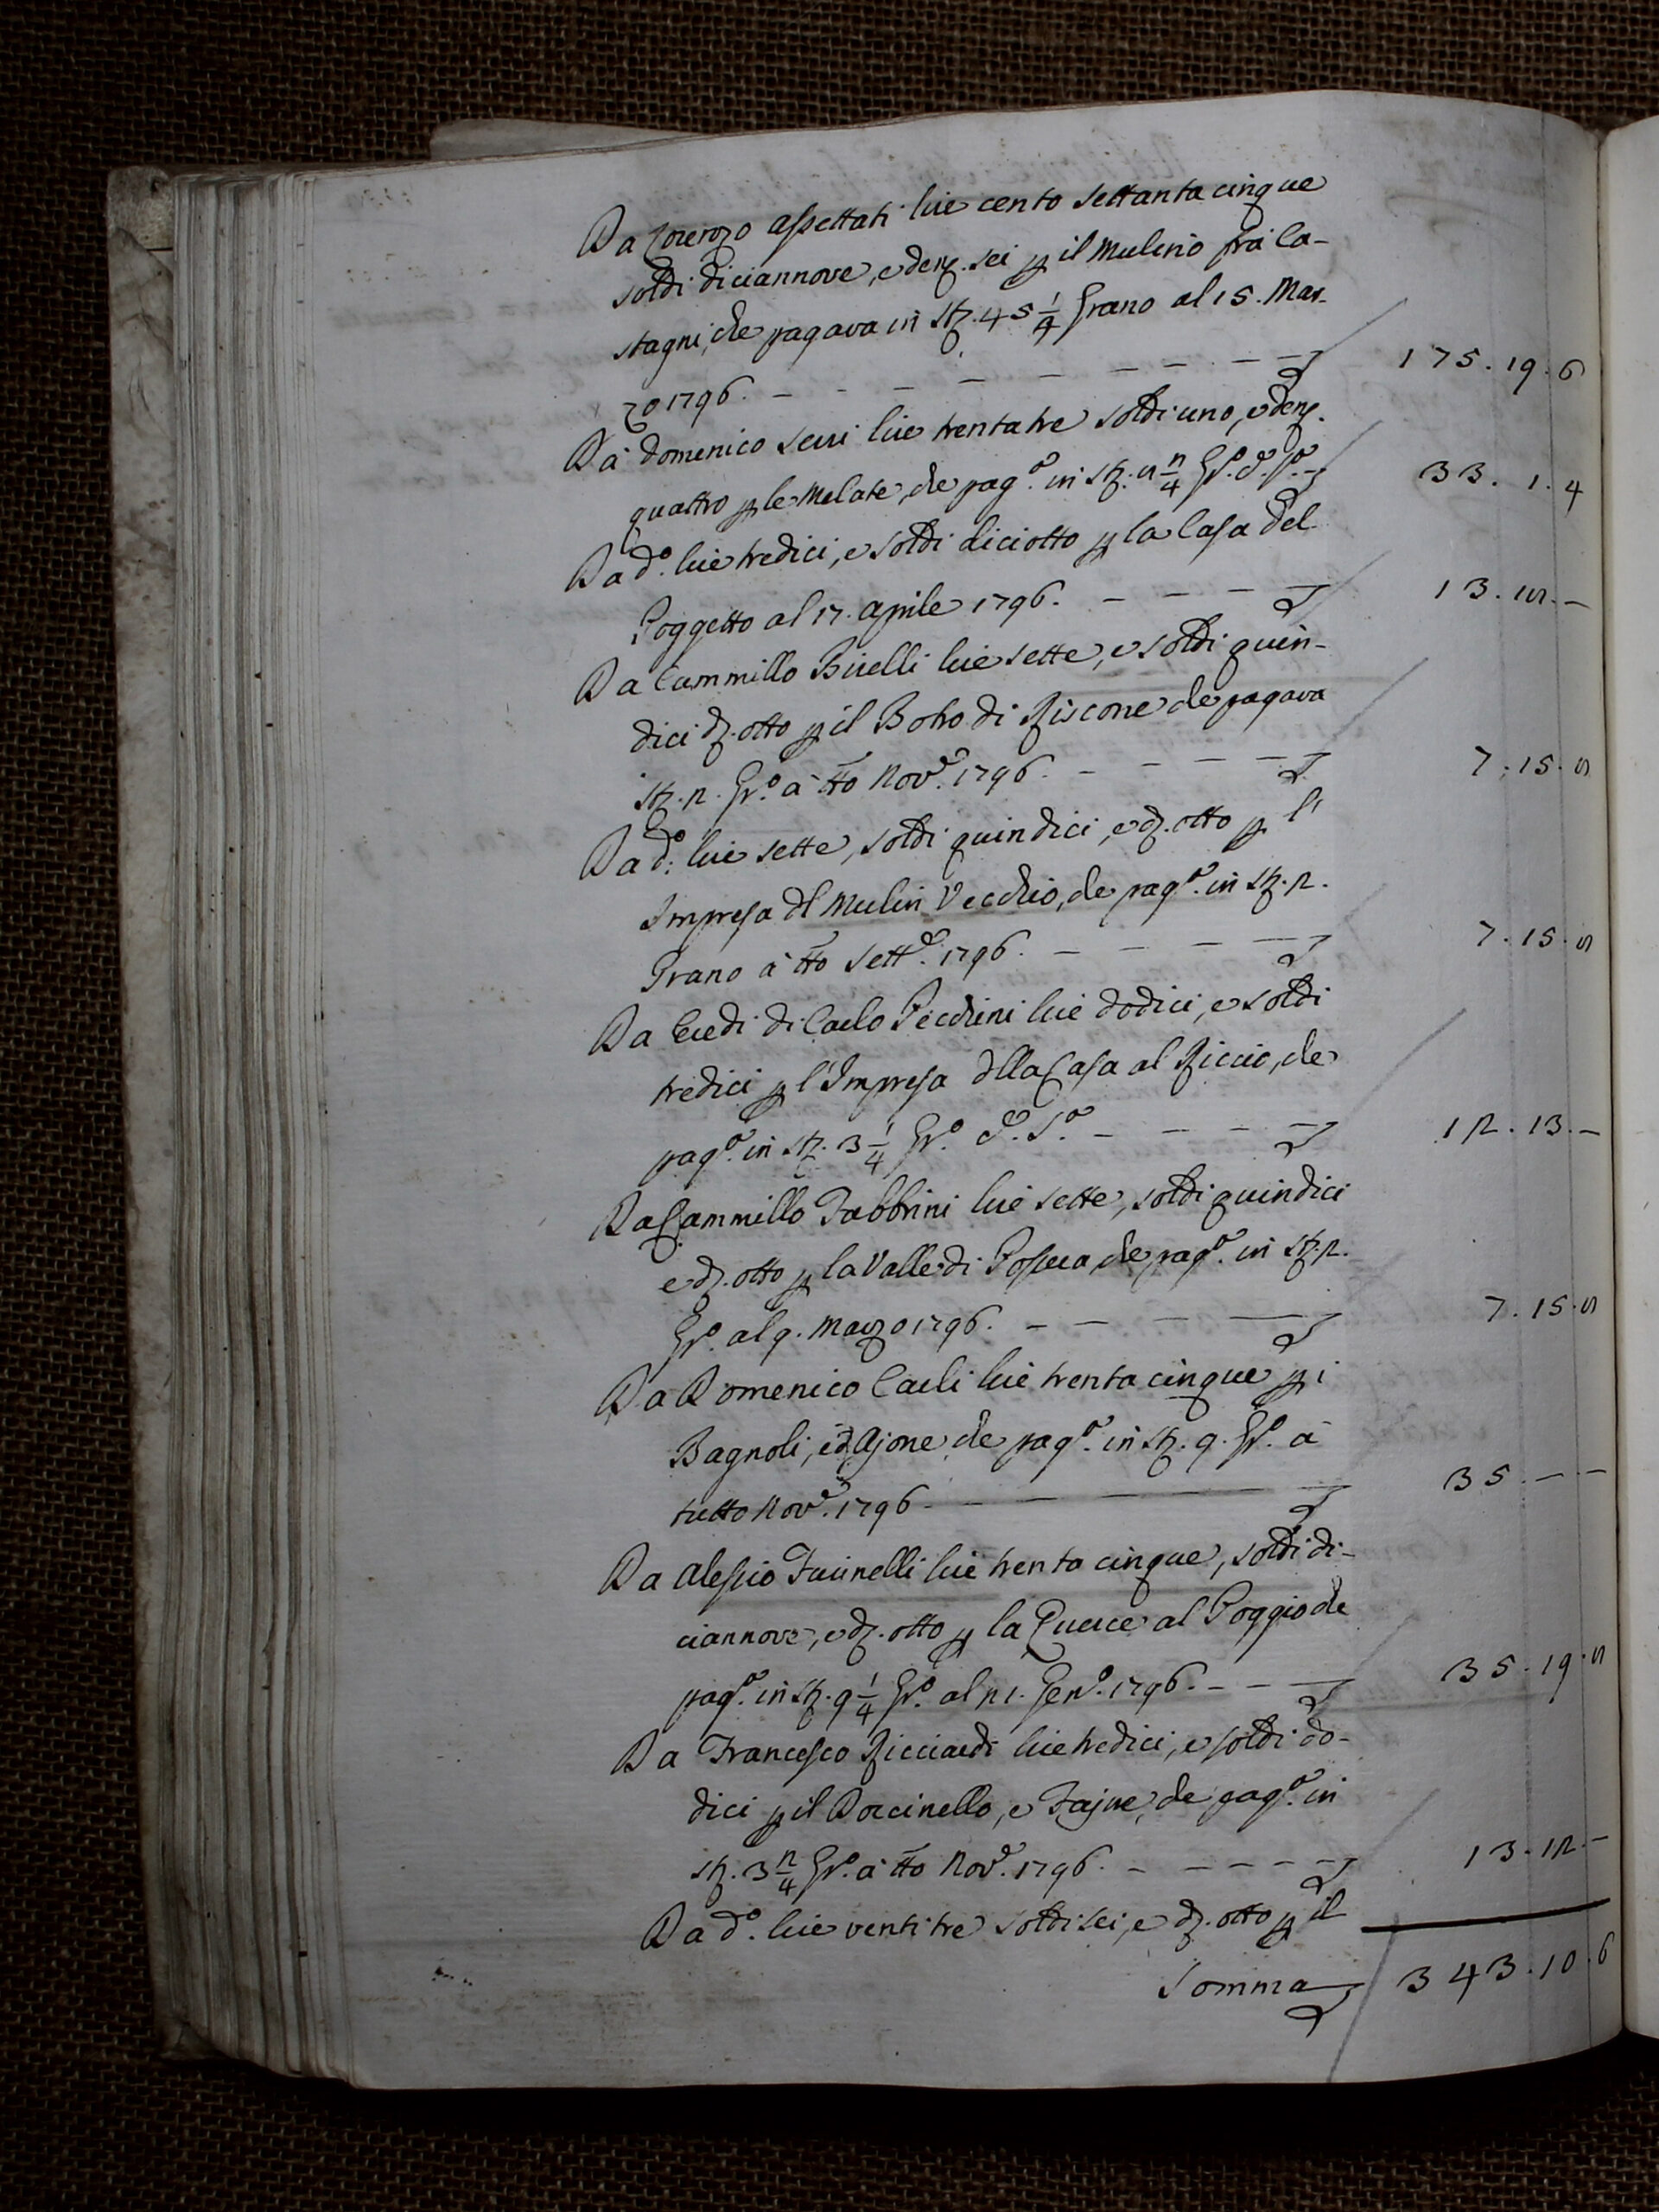 Da Lorenzo Aspettati lire cento settanta cinque
soldi diciannove, e den. sei p il Mulino fra Ca-
stagni, che pagava in st. 45 1/4 Grano al 15. Mar-
zo 1796. - - - - - - - - 175.19.6
Da Domenico Serri lire trentatre soldi uno, e den.
quattro p le Melate, che pag.ª in st. 8 2/4 Gr.º d.º s.ª - 33.1.4
Da d.º lire tredici, e soldi diciotto p la Casa del
Poggetto al 17. Aprile 1796. - - - - 13.18.-
Da Cammillo Birelli lire sette, e soldi quin-
dici d. otto p il Botro di Riscone che pagava
st. 2. Gr.º a tto Nov.e 1796. - - - - 7.15.8
Da d.º lire sette, soldi quindici, e d. otto p l'
Impresa dl Mulin Vecchio, che pag.ª in st. 2.
Grano a tto Sett.e 1796. - - - - 7.15.8
Da Eredi di Carlo Pecchini lire dodici, e soldi
tredici p l'Impresa dlla Casa al Riccio, che
pag.ª in st. 3 1/4 Gr.º d.º s.ª - - - - 12.13.-
Da Cammillo Fabbrini lire sette, soldi quindici
e d. otto p la Valle di che pag.ª in st. 2.
Gr.º al 9. Marzo 1796. - - - - 7.15.8
Da Domenico Carli lire trenta cinque p i
Bagnoli, ed Ajone che pag.ª in st. 9. Gr.º a
tutto Nov.e 1796 - - - - - 35.-.-
Da Alessio Fucinelli lire trenta cinque, soldi di-
ciannove, e d. otto p la Querce al Poggio che
pag.ª in st. 9 1/4 Gr.º al 21. Gen.º 1796. - - - 35.19.8
Da Francesco Ricciardi lire tredici, e soldi do-
dici p il Dorcinello, e che pag.ª in
st. 3 2/4 Gr.º a tto Nov.e 1796. - - - - - 13.12.-
Da d.º lire ventitre soldi sei, e d. otto p il
Somma 343.10.6